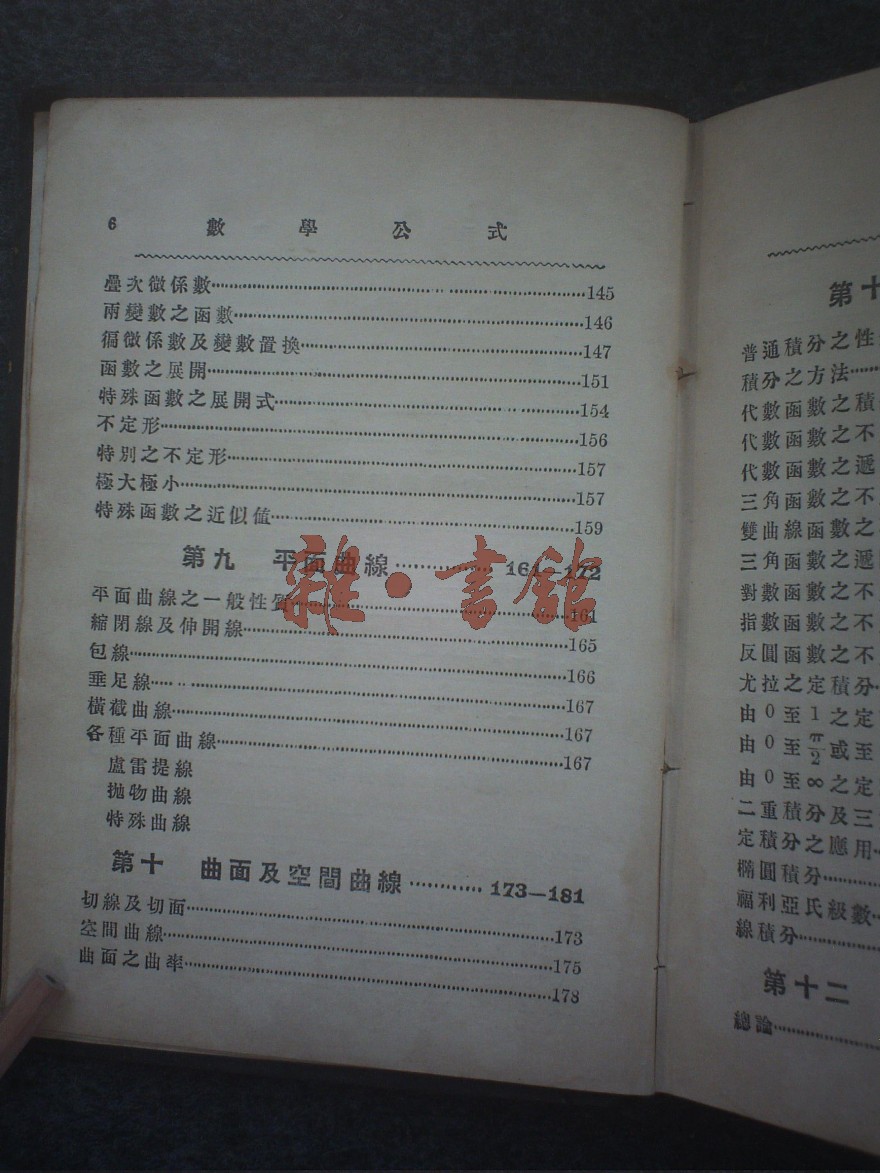 6 數學公式
疊次微係數……145
兩變數之函數……146
徧微係數及變數置換……147
函數之展開……151
特殊函數之展開式……154
不定形……156
特別之不定形……157
極大極小……157
特殊函數之近似值……159
第九 平面曲線……161—172
平面曲線之一般性質……161
縮閉線及伸開線……165
包線……166
垂足線……167
橫截曲線……167
各種平面曲線……167
盧雷提線
拋物曲線
特殊曲線
第十 曲面及空間曲線……173—181
切線及切面……173
空間曲線……175
曲面之曲率……178
雜·書館
第十
普通積分之性
積分之方法……
代數函數之積
代數函數之不
代數函數之遞
三角函數之不
雙曲線函數之
三角函數之遞
對數函數之不
指數函數之不
反圓函數之不
尤拉之定積分
由0至1之定
由0至π/2或至
由0至∞之定
二重積分及三
定積分之應用
橢圓積分……
福利亞氏級數
線積分……
第十二
總論……